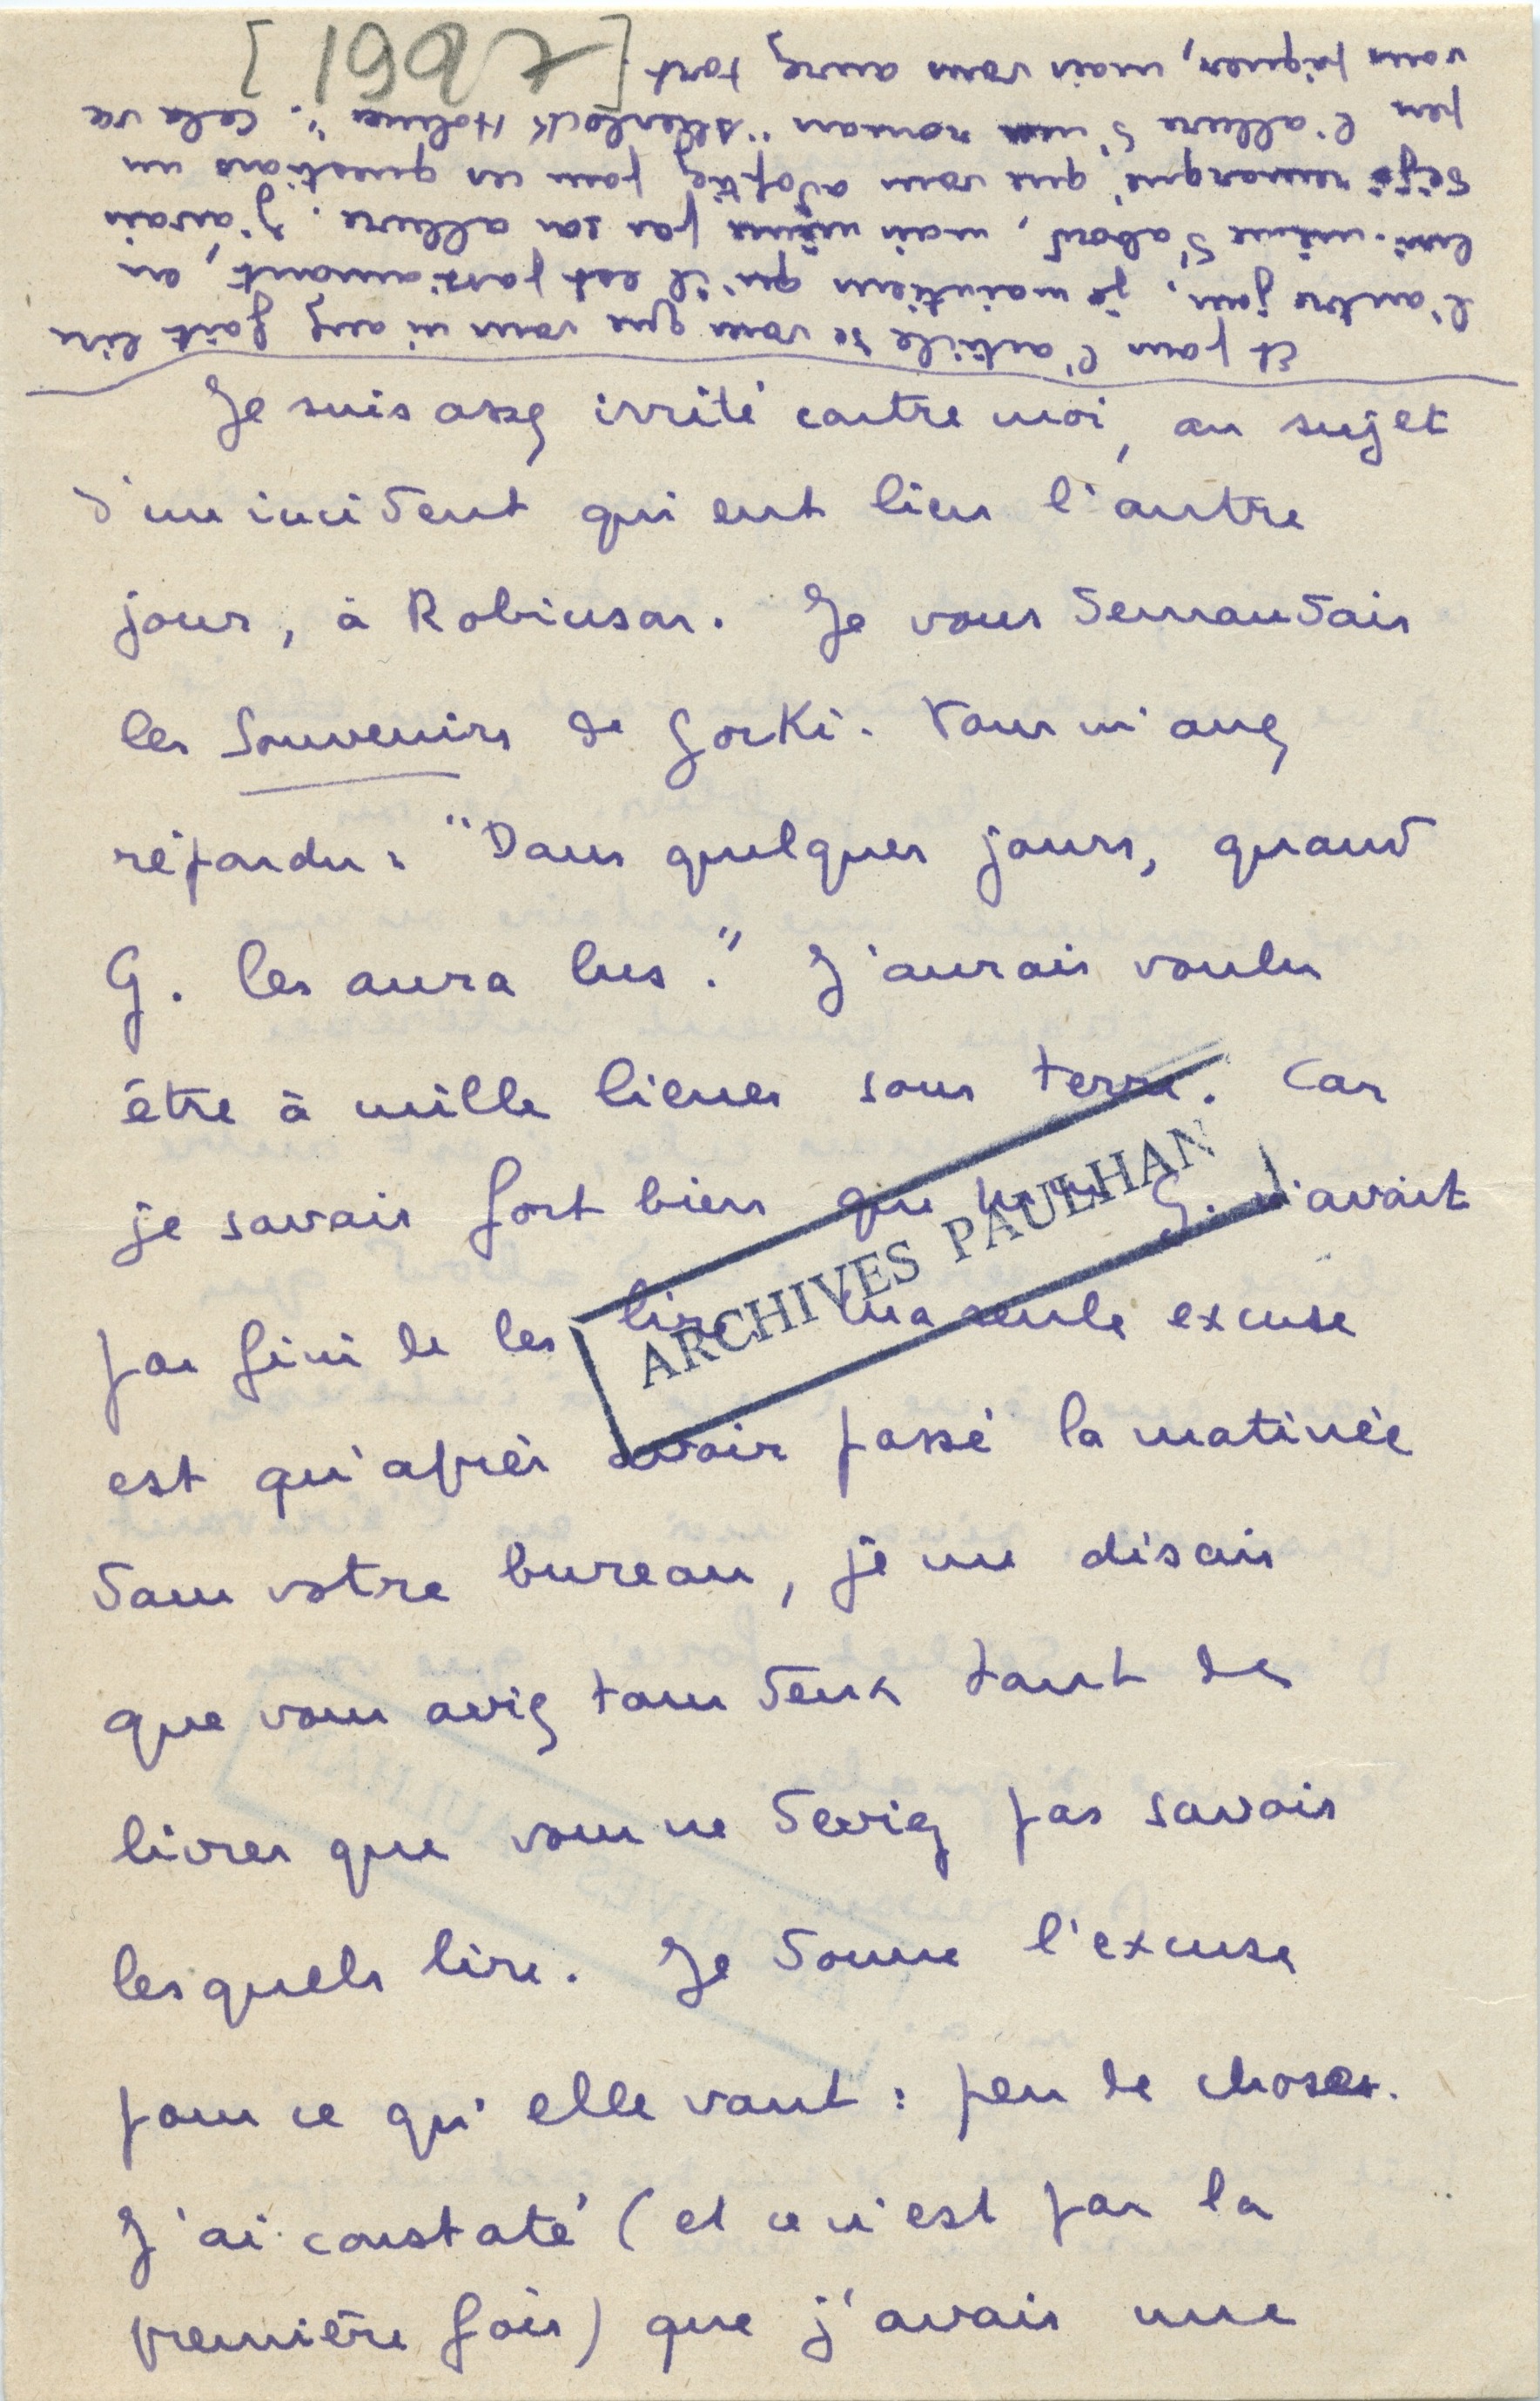 [1927]
Je suis assez irrité contre moi, au sujet
d'un incident qui eut lieu l'autre
jour, à Robinson. Je vous demandais
les Souvenirs de Gorki. Vous m'avez
répondu : "Dans quelques jours, quand
G. les aura lus." J'aurais voulu
être à mille lieues sous terre. Car
je savais fort bien que G. n'avait
pas fini de les lire. Ma seule excuse
est qu'après avoir passé la matinée
dans votre bureau, je me disais
que vous aviez tous deux tant de
livres que vous ne deviez pas savoir
lesquels lire. Je donne l'excuse
pour ce qu'elle vaut : peu de choses.
J'ai constaté (et ce n'est pas la
première fois) que j'avais une
ARCHIVES PAULHAN
Et pour l'article de vous que vous m'avez fait lire
l'autre jour, je maintiens qu'il est passionnant, en
lui-même d'abord, mais même par son allure. J'avais
déjà remarqué que vous adoptiez pour ces questions un
peu l'allure d'un roman "Sherlock Holmes". Cela va
vous fâcher, mais vous aurez tort.